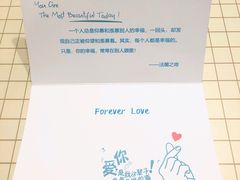 You Are
The Most Beautiful Today!
一个人总是仰慕和羡慕别人的幸福，一回头，却发
现自己正被仰望和羡慕着。其实，每个人都是幸福的。
只是，你的幸福，常常在别人眼里！
——法蕾之奇
Forever Love
爱你
是我这辈子